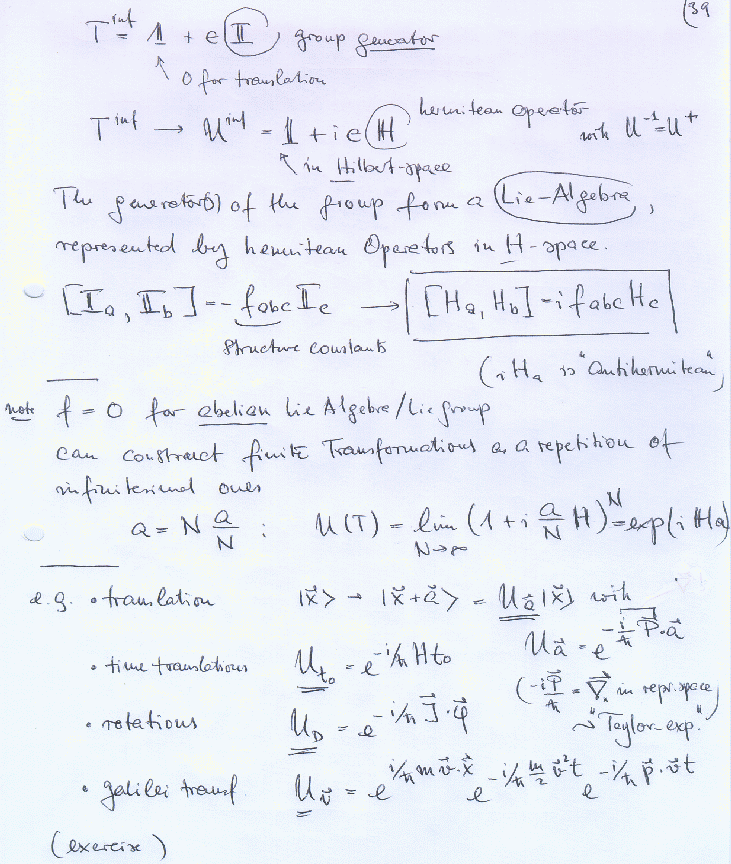 (39
T^inf = 𝟙 + ε 𝕀 , group generator
↑ 0 for translation
T^inf → U^inf = 𝟙 + i ε ℍ hermitean operator with U^-1 = U^+
↖ in Hilbert-space
The generator(s) of the group form a Lie-Algebra,
represented by hermitean Operators in H-space.
[𝕀_a, 𝕀_b] = - f_abc 𝕀_c → [H_a, H_b] = i f_abc H_c
structure constants
(i H_a is "Antihermitean")
note f = 0 for abelian Lie Algebra/Lie group
can construct finite Transformations as a repetition of
infinitesimal ones
a = N a/N : U(T) = lim N→∞ (1 + i a/N H)^N = exp(i H a)
e.g. • translation |x⃗> → |x⃗+a⃗> = U_a⃗ |x⃗> with
U_a⃗ = e^{-i/ħ P⃗·a⃗}
• time translations U_t₀ = e^{-i/ħ H t₀}
(-iP⃗/ħ = ∇⃗ in repr. space)
~ "Taylor-exp."
• rotations U_D = e^{-i/ħ J⃗·φ⃗}
• galilei transf U_v⃗ = e^{i/ħ m v⃗·x⃗} e^{-i/ħ m/2 v⃗² t} e^{-i/ħ p⃗·v⃗ t}
(exercise)